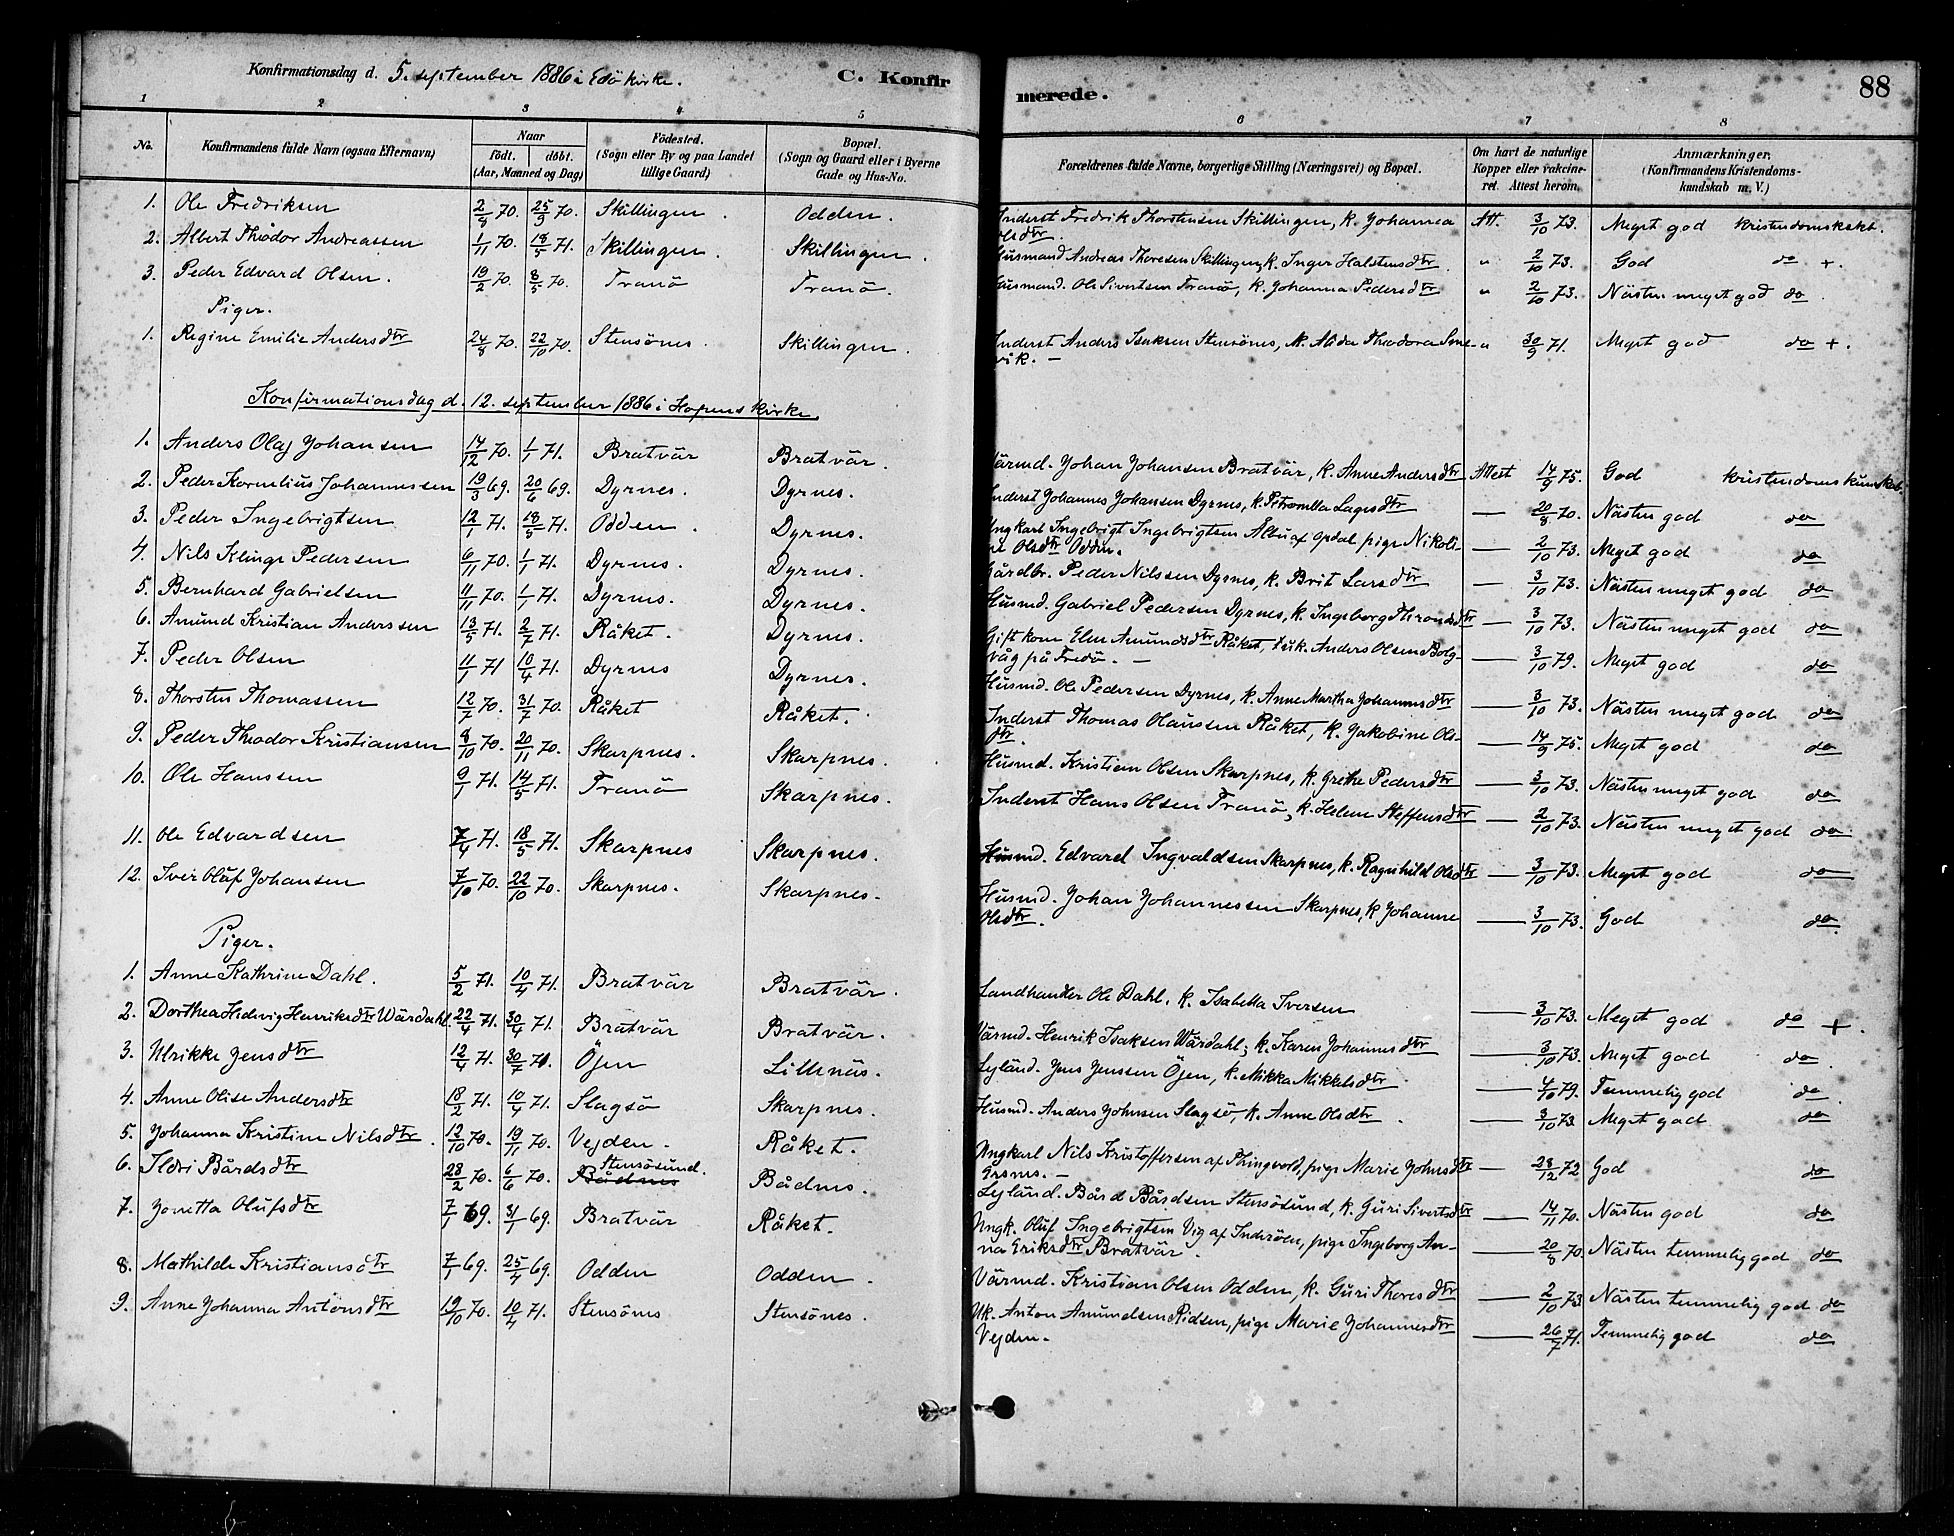 Konfirmationsdag d. 5. september 1886 i Edö kirke.
C. Konfirmerede.
88
1 2 3 4 5 6 7 8
No. Konfirmandens fulde Navn (ogsaa Efternavn) Naar födt. döbt. (Aar, Maaned og Dag) Födested. (Sogn eller By og paa Landet tillige Gaard) Bopæl. (Sogn og Gaard eller i Byerne Gade og Hus-No. Forældrenes fulde Navne, borgerlige Stilling (Næringsvei) og Bopæl. Om havt de naturlige Kopper eller vakcineret. Attest herom. Anmærkninger. (Konfirmandens Kristendomskundskab m. V.)
1. Ole Fredriksen 2/8 70. 25/9 70. Skillingen. Odden. Inderst Fredrik Thorstensen Skillingen, k. Johanna Olsdtr. Att. 3/10 73. Meget god kristendomskskt.
2. Albert Theodor Andreassen 1/11 70. 18/5 71. Skillingen. Skillingen. Husmand Andreas Thoresen Skillingen, k. Inger Halstensdtr. " 2/10 73. God do +.
3. Peder Edvard Olsen. 19/2 70. 8/5 70. Tranö Tranö. Husmand. Ole Sivertsen Tranö, k. Johanna Pedersdtr " 2/10 73. Nästen meget god do.
Piger.
1. Regine Emilie Andersdtr 24/8 70. 22/10 70. Stensönes. Skillingen. Inderst Anders Isaksen Stensönes, k. Alida Theodora Smevik. — " 30/9 71. Meget god do +.
Konfirmationsdag d. 12. september 1886 i Hopens kirke.
1. Anders Olaj Johansen 14/12 70. 1/1 71. Bratvär Bratvär. Värmd. Johan Johansen Bratvär, k. Anne Andersdtr Attest 14/9 75. God kristendomskundskab.
2. Peder Kornelius Johannessen 19/3 69. 20/6 69. Dyrnes. Dyrnes. Inderst Johannes Johansen Dyrnes, k. Petronella Larsdtr — 20/8 70. Nästen god do
3. Peder Ingebrigtsen 12/1 71. 18/5 71. Odden. Dyrnes. Ungkarl Ingebrigt Ingebrigtsen Albu af Opdal, pige Nikoline Olsdtr Odden. — 2/10 73. Meget god do
4. Nils Klinge Pedersen 6/11 70. 1/1 71. Dyrnes. Dyrnes. Gårdbr. Peder Nilssen Dyrnes, k. Brit Larsdtr — 3/10 73. Nästen meget god do
5. Bernhard Gabrielsen 11/11 70. 1/1 71. Dyrnes. Dyrnes. Husmd. Gabriel Pedersen Dyrnes, k. Ingeborg Throndsdtr — 3/10 73. Nästen meget god do
6. Amund Kristian Anderssen 13/5 71. 2/7 71. Råket. Dyrnes. Gift kone Elen Amundsdtr Råket, uk. Anders Olsen Bolgvåg på Fredö. — 3/10 79. Meget god do
7. Peder Olsen 11/1 71 10/4 71. Dyrnes Dyrnes. Husmd. Ole Pedersen Dyrnes, k. Anne Martha Johannesdtr — 3/10 73. Nästen meget god do
8. Thorsten Thomassen 12/7 70. 31/7 70. Råket Råket. Inderst Thomas Olaussen Råket, k. Jakobine Olsdtr. — 14/9 75. Meget god do
9. Peder Theodor Kristiansen 8/10 70. 20/11 70. Skarpnes. Skarpnes. Husmd. Kristian Olsen Skarpnes, k. Grethe Pedersdtr — 3/10 73. Nästen meget god do
10. Ole Hanssen 9/1 71. 14/5 71. Tranö Skarpnes. Inderst Hans Olsen Tranö, k. Helene Steffensdtr — 2/10 73. Nästen meget god do
11. Ole Edvardsen 7/4 71. 18/5 71. Skarpnes Skarpnes. Husmd. Edvard Ingvaldsen Skarpnes, k. Ragnhild Olsdtr — 3/10 73. Meget god do
12. Iver Oluf Johansen 7/10 70. 22/10 70. Skarpnes. Skarpnes. Husmd. Johan Johannessen Skarpnes, k. Johanne Olsdtr. — 3/10 73. God do.
Piger.
1. Anne Kathrine Dahl. 5/2 71. 10/4 71. Bratvär Bratvär. Landhandler Ole Dahl, k. Isabella Iversen — 3/10 73. Meget god do +.
2. Dorthea Hedvig Henriksdtr Wärdahl. 22/4 71. 30/4 71. Bratvär Bratvär. Värmd. Henrik Isaksen Wärdahl, k. Karen Johannesdtr — 3/10 73. Meget god do
3. Ulrikke Jensdtr 12/4 71. 30/7 71. Öjen Lillenäs. Leyländ. Jens Jenssen Öjen, k. Mikka Mikkelsdtr — 4/10 79. Temmelig god do.
4. Anne Olise Andersdtr 18/2 71. 10/4 71. Slagsö Skarpnes. Husmd. Anders Johnsen Slagsö, k. Anne Olsdtr. — 3/10 73 Meget god do
5. Johanna Kristine Nilsdtr. 12/10 70. 19/11 70. Vejden. Råket. Ungkarl Nils Kristoffersen af Thingvold, pige Marie Johnsdtr — 28/12 72 God do
6. Ildri Bårdsdtr 28/2 70. 6/6 70. Stensösund. Bådnes. Leyländ. Bård Bårdsen Stensösund, k. Guri Sivertsdtr — 14/11 70. Nästen god do
7. Jonetta Olufsdtr 7/1 69. 31/1 69. Bratvär Råket. Ungk. Oluf Ingebrigtsen Vig af Inderöen, pige Ingeborg Anna Eriksdtr Bratvär. — 20/8 70. Nästen temmelig god do
8. Mathilde Kristiansdtr 7/1 69. 25/4 69. Odden Odden. Värmd. Kristian Olsen Odden, k. Guri Thoresdtr — 2/10 73 Nästen temmelig god do
9. Anne Johanna Antonsdtr 19/10 70. 10/4 71. Stensönes Stensönes. Uk. Anton Amundsen Ridsen, pige Marie Johannesdtr Vejden. — 26/7 71. Temmelig god do